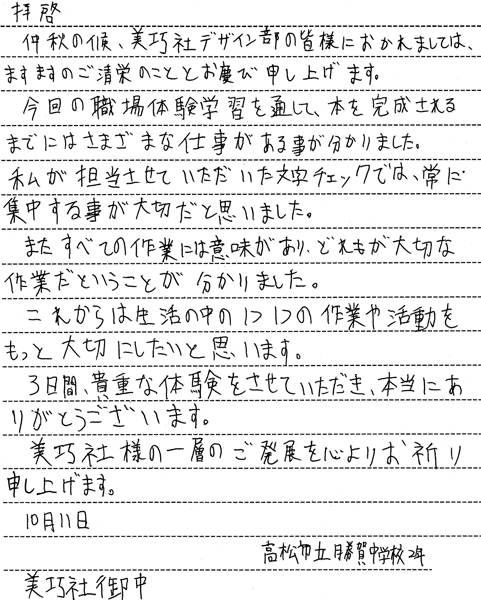 拝啓
仲秋の候、美巧社デザイン部の皆様におかれましては、
ますますのご清栄のこととお慶び申し上げます。
今回の職場体験学習を通して、本を完成される
までにはさまざまな仕事がある事が分かりました。
私が担当させていただいた文字チェックでは、常に
集中する事が大切だと思いました。
またすべての作業には意味があり、どれもが大切な
作業だということが分かりました。
これからは生活の中の1つ1つの作業や活動を
もっと大切にしたいと思います。
3日間、貴重な体験をさせていただき、本当にあ
りがとうございます。
美巧社様の一層のご発展を心よりお祈り
申し上げます。
10月11日
高松市立勝賀中学校2年
美巧社御中